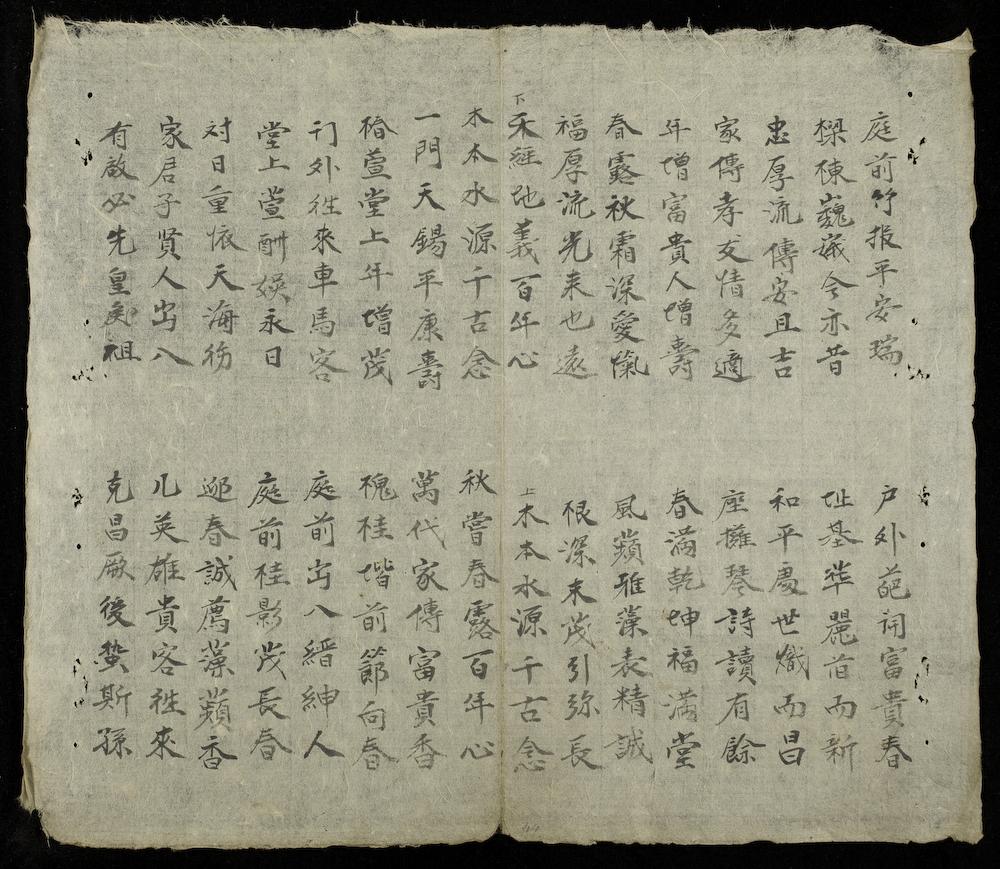 庭前竹报平安瑞
户外葩開富貴春
樑棟巍峩今亦昔
址基華麗而新
忠厚流傳安且吉
和平處世熾而昌
家傳孝友情多適
座擁琴詩讀有餘
年增富貴人增壽
春满乾坤福满堂
春露秋霜深愛愾
風蘋雅藻表精誠
福厚流光来也遠
根深末茂引弥長
下
天経地義百年心
上
木本水源千古念
木本水源千古念
秋嘗春露百年心
一門天錫平康壽
萬代家傳富貴香
椿萱堂上年增茂
槐桂堦前節向春
门外往来車馬客
庭前出入縉紳人
堂上萱酣娱永日
庭前桂影茂長春
对日重依天海
迎春誠薦藻蘋香
家居子賢人出入
几英雄貴客往來
有啟必先皇矣祖
克昌厥後螽斯孫